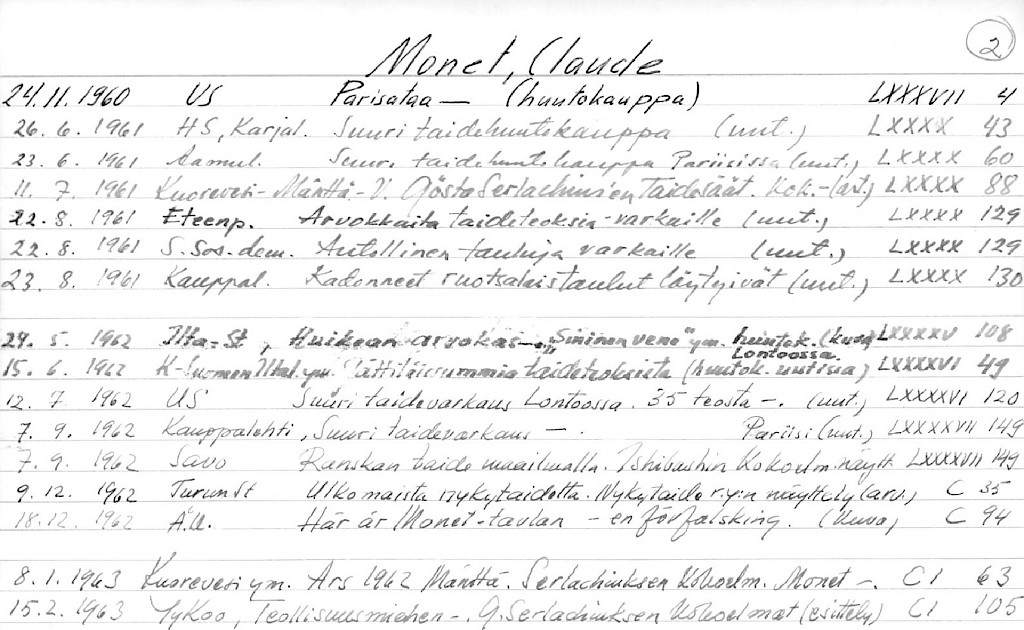 2
Monet, Claude
24.11.1960 US Parisataa — (huutokauppa) LXXXVII 4
26.6.1961 HS, Karjal. Suuri taidehuutokauppa (uut.) LXXXX 43
23.6.1961 Aamul. Suuri taidehuutokauppa Pariisissa (uut.) LXXXX 60
11.7.1961 Kuorevesi-Mänttä-V. Gösta Serlachiuksen Taidesäät. Kok.- LXXXX 88
22.8.1961 Eteenp. Arvokkaita taideteoksia varkaille (uut.) LXXXX 129
22.8.1961 S. Sos.-dem. Autollinen tauluja varkaille (uut.) LXXXX 129
23.8.1961 Kauppal. Kadonneet ruotsalaistaulut löytyivät (uut.) LXXXX 130
5.1962 Ilta-St, Huikean arvokas —. "Sininen vene" ym. huutok. (kuva) LXXXXV 108
Lontoossa.
15.6.1962 K-Suomen Iltal. ym. taideteoksista (huutok. uutisia) LXXXXVI 49
12.7.1962 US Suuri taidevarkaus Lontoossa. 35 teosta —. (uut.) LXXXXVI 120
7.9.1962 Kauppalehti, Suuri taidevarkaus —. Pariisi (uut.) LXXXXVII 149
7.9.1962 Savo Ranskan taide maailmalla. Ishibashin Kokoelm. näytt. LXXXXVII 149
9.12.1962 TurunSt Ulkomaista nykytaidetta. Nykytaide r.y:n näyttely (arv.) C 35
18.12.1962 Å.U. Här är Monet-tavlan - en förfalskning. (Kuva) C 94
8.1.1963 Kuorevesi ym. Ars 1962 Mänttä. Serlachiuksen Kokoelm. Monet —. CI 63
15.2.1963 TyKoo, Teollisuusmiehen —. G. Serlachiuksen Kokoelmat (esittely) CI 105